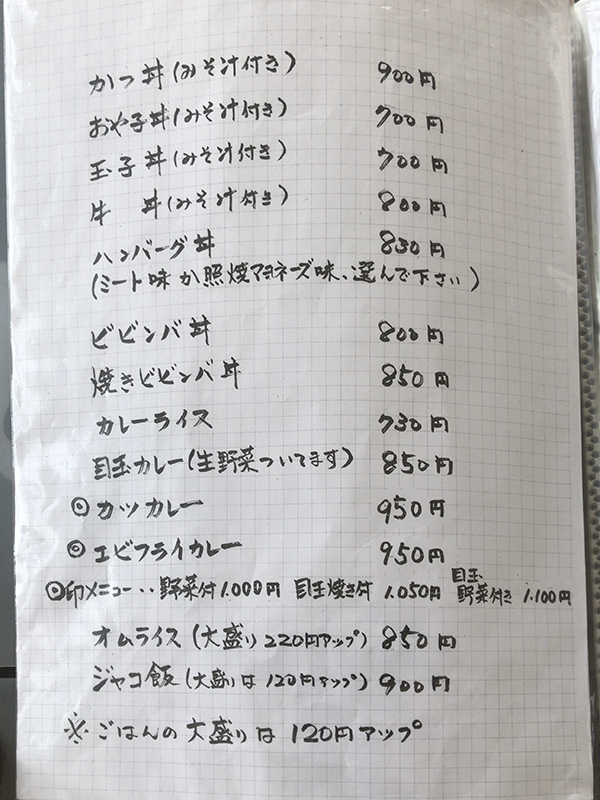 かつ丼(みそ汁付き) 900円
おや子丼(みそ汁付き) 700円
玉子丼(みそ汁付き) 700円
牛 丼(みそ汁付き) 800円
ハンバーグ丼 830円
(ミート味か照焼マヨネーズ味、選んで下さい)
ビビンバ丼 800円
焼きビビンバ丼 850円
カレーライス 730円
目玉カレー(生野菜ついてます) 850円
◎カツカレー 950円
◎エビフライカレー 950円
◎印メニュー‥野菜付1.000円 目玉焼き付 1.050円 目玉野菜付き 1.100円
オムライス(大盛り220円アップ) 850円
ジャコ飯(大盛りは120円アップ) 900円
※ごはんの大盛りは120円アップ